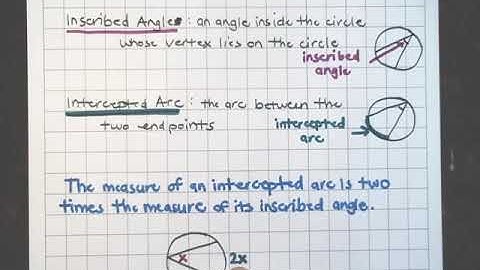 Inscribed Angles: an angle inside the circle
whose vertex lies on the circle
inscribed
angle
Intercepted Arc: the arc between the
two endpoints
intercepted
arc
The measure of an intercepted arc is two
times the measure of its inscribed angle.
x
2x